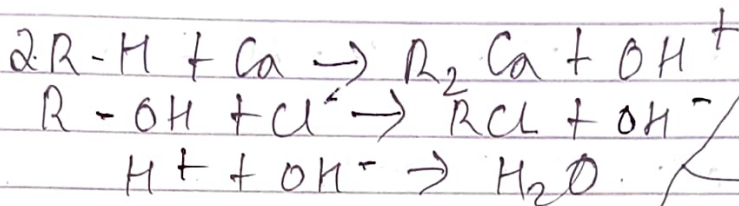 2R-H + Ca → R₂Ca + OH⁺
R-OH + Cl⁻ → RCl + OH⁻
H⁺ + OH⁻ → H₂O.